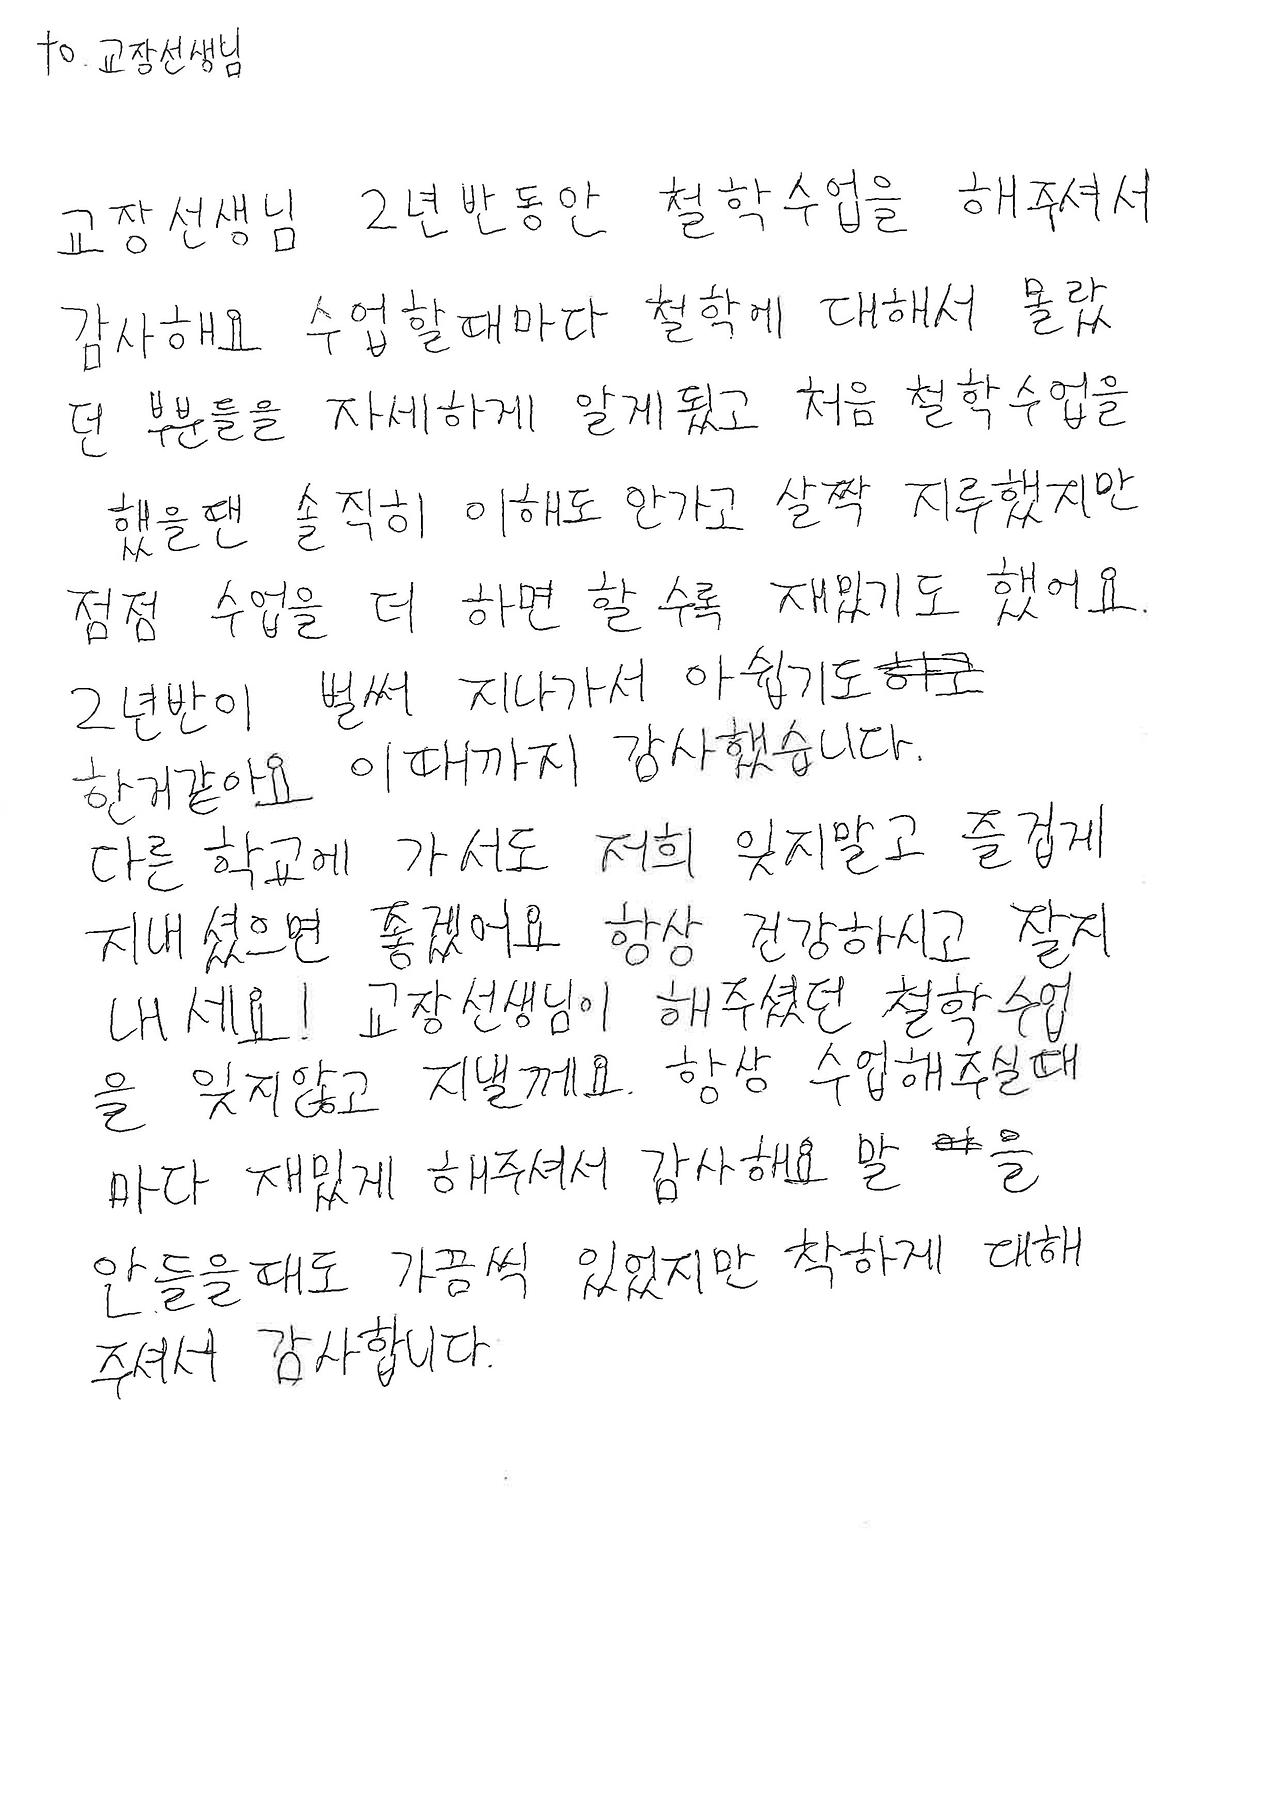 to. 교장선생님
교장선생님 2년반동안 철학수업을 해주셔서
감사해요 수업할때마다 철학에 대해서 몰랐
던 부분들을 자세하게 알게됐고 처음 철학수업을
했을땐 솔직히 이해도 안가고 살짝 지루했지만
점점 수업을 더 하면 할수록 재밌기도 했어요.
2년반이 벌써 지나가서 아쉽기도
한거같아요 이때까지 감사했습니다.
다른 학교에 가서도 저희 잊지말고 즐겁게
지내셨으면 좋겠어요 항상 건강하시고 잘지
내세요! 교장선생님이 해주셨던 철학수업
을 잊지않고 지낼께요. 항상 수업해주실때
마다 재밌게 해주셔서 감사해요 말 을
안들을때도 가끔씩 있었지만 착하게 대해
주셔서 감사합니다.